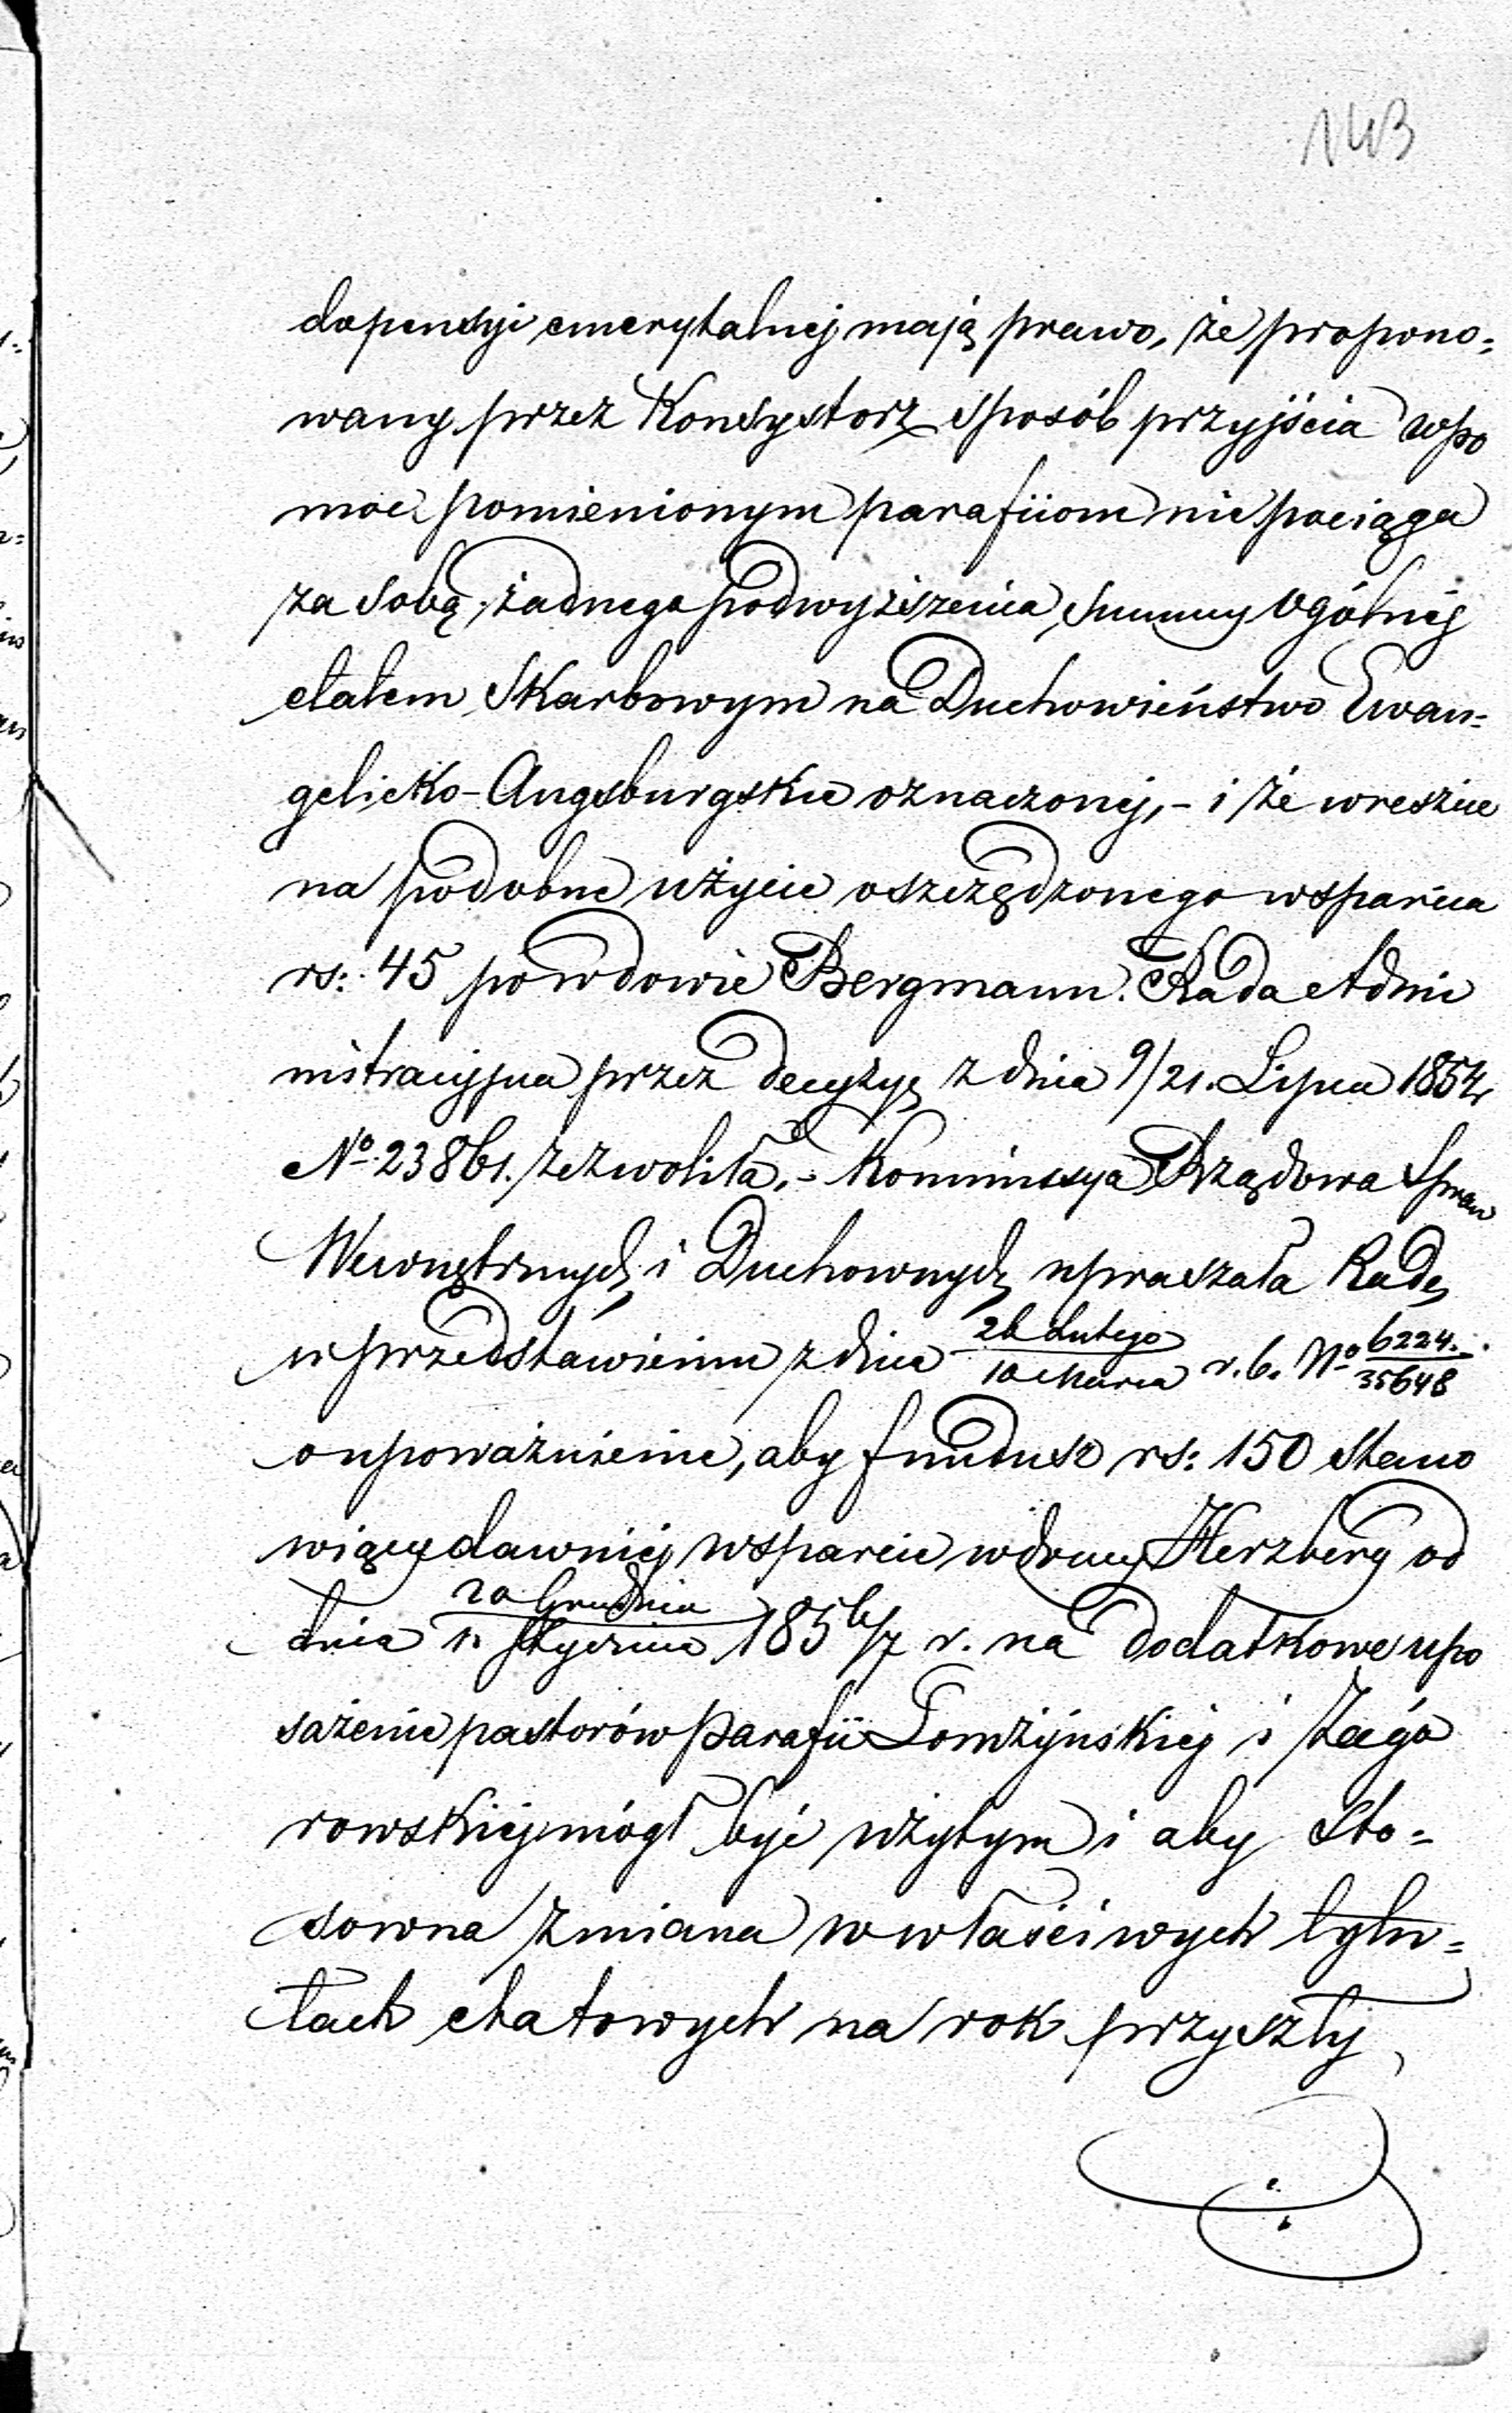 143
do pensyi emerytalnej mają prawo, że propono=
wany przez Konsystorz sposób przyjścia w po
moc pomienionym parafiiom nie pociąga
za sobą żadnego podwyższenia summy ogólnej
etatem Skarbowym na Duchowieństwo Ewan=
gelicko-Augsburgskie oznaczonej,- i że wreszcie
na podobne użycie oszczędzonego wsparcia
rs: 45 po wdowie Bergmann. Rada Admi
nistracyjna przez decyzyę z dnia 9/21. Lipca 1854 r
No. 23861. zezwoliła,- Kommissya Rządowa Spraw
Wewnętrznych i Duchownych upraszała Radę
w przedstawieniu z dnia 26 Lutego / 10 Marca r. b. No 6224. / 35648
o upoważnienie, aby fundusz rs: 150 stano
wiący dawniej wsparcie wdowy Herzberg od
dnia 20 Grudnia / 1. Stycznia 1856/7 r. na dodatkowe upo
sażenie pastorów parafii Łomżyńskiej i Zagó
rowskiej mógł być użytym i aby sto=
sowna zmiana w właściwych tytu=
łach etatowych na rok przyszły